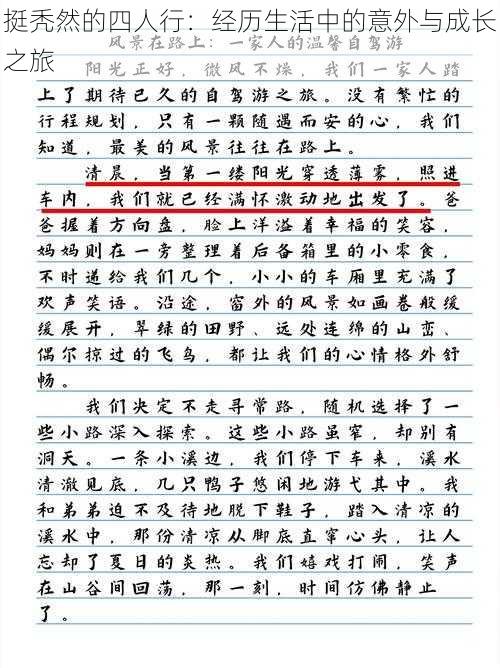 挺秃然的四人行：经历生活中的意外与成长
之旅
风景在路上：一家人的温馨自驾游
阳光正好，微风不燥，我们一家人踏
上了期待已久的自驾游之旅。没有繁忙的
行程规划，只有一颗随遇而安的心，我们
知道，最美的风景往往在路上。
清晨，当第一缕阳光穿透薄雾，照进
车内，我们就已经满怀激动地出发了。爸
爸握着方向盘，脸上洋溢着幸福的笑容，
妈妈则在一旁整理着后备箱里的小零食，
不时递给我们几个，小小的车厢里充满了
欢声笑语。沿途，窗外的风景如画卷般缓
缓展开，翠绿的田野、远处连绵的山峦、
偶尔掠过的飞鸟，都让我们的心情格外舒
畅。
我们决定不走寻常路，随机选择了一
些小路深入探索。这些小路虽窄，却别有
洞天。一条小溪边，我们停下车来，溪水
清澈见底，几只鸭子悠闲地游弋其中。我
和弟弟迫不及待地脱下鞋子，踏入清凉的
溪水中，那份清凉从脚底直窜心头，让人
忘却了夏日的炎热。我们嬉戏打闹，笑声
在山谷间回荡，那一刻，时间仿佛静止
了。